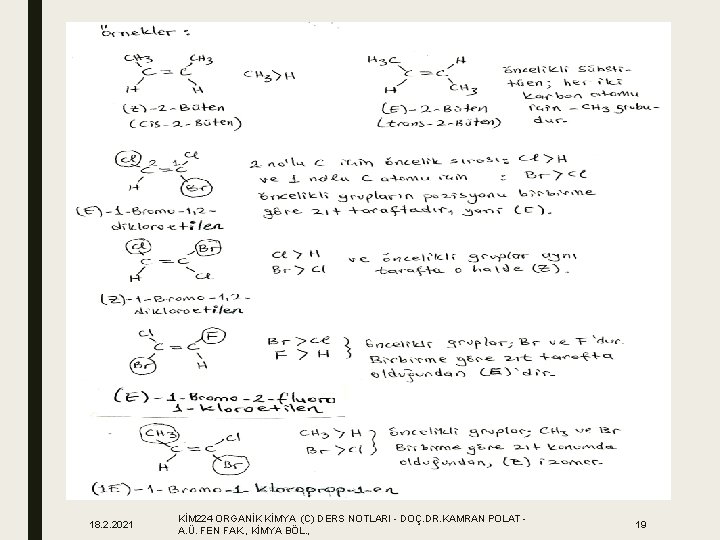 örnekler :
CH3 CH3
C = C
H H
CH3>H
(Z)-2-Büten
(cis-2-Büten)
H3C H
C = C
H CH3
(E)-2-Büten
(trans-2-Büten)
öncelikli sübsti-
tüen; her iki
karbon atomu
için -CH3 grubu-
dur.
Cl 2 1 Cl
C = C
H Br
(E)-1-Bromo-1,2-
dikloroetilen
2 no'lu C için öncelik sırası: Cl>H
ve 1 nolu C atomu için : Br>Cl
öncelikli grupların pozisyonu birbirine
göre zıt taraftadır, yani (E).
Cl Br
C = C
H Cl
(Z)-1-Bromo-1,2-
dikloroetilen
Cl > H
Br > Cl
ve öncelikli gruplar aynı
tarafta o halde (Z).
Cl F
C = C
Br H
(E)-1-Bromo-2-fluoro
1-kloroetilen
Br > Cl
F > H
öncelikli gruplar; Br ve F'dur.
Birbirine göre zıt tarafta
olduğundan (E)'dir.
CH3 Cl
C = C
H Br
(1E)-1-Bromo-1-kloroprop-1-en
CH3 > H
Br > Cl
öncelikli gruplar; CH3 ve Br
Birbirine göre zıt konumda
olduğundan, (E) izomer.
18.2.2021
KİM 224 ORGANİK KİMYA (C) DERS NOTLARI - DOÇ.DR.KAMRAN POLAT -
A.Ü. FEN FAK., KİMYA BÖL.,
19